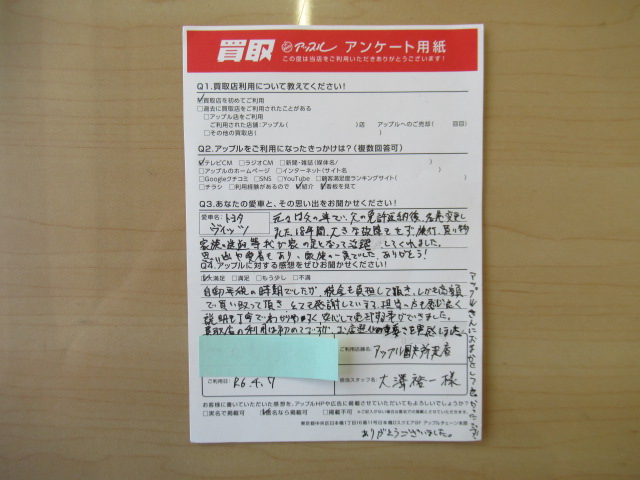 買取 アップル アンケート用紙
この度は当店をご利用いただきありがとうございます!
Q1.買取店利用について教えてください!
□買取店を初めてご利用
□過去に買取店をご利用されたことがある
□アップル店をご利用
ご利用された店舗:アップル( )店 アップルへのご売却( 回目)
□その他の買取店( )
Q2.アップルをご利用になったきっかけは?(複数回答可)
□テレビCM □ラジオCM □新聞・雑誌(媒体名/ )
□アップルのホームページ □インターネット(サイト名 )
□Googleクチコミ □SNS □YouTube □顧客満足度ランキングサイト( )
□チラシ □利用経験があるので □紹介 □看板を見て
Q3.あなたの愛車と、その思い出をお聞かせください!
愛車名: トヨタ
ヴィッツ
元々は父の車で、父の免許返納後、名義変更し
ました。18年間、大きな故障もせず
家族の送迎等我が家の足となって活躍してくれました。
ありがとう!
Q4.アップルに対する感想をぜひお聞かせください!
□大満足 □満足 □もう少し □不満
自動車税の時期でしたが、税金も負担して頂き、しかも高額
で買い取って頂き、とても感謝しています。担当の方も感じ良く
説明も丁寧でわかりやすく、安心して
買取店の利用は初めてですが、お店選びの重要さを実感しました。
アップルさんにおまかせして良かったです
ありがとうございました。
ご利用店舗名: アップル
ご利用日: R6.4.7
担当スタッフ名: 大澤裕一様
お客様に書いていただいた感想を、アップルHPや広告に掲載させていただいてもよろしいでしょうか?
□実名で掲載可 □匿名なら掲載可 □掲載不可